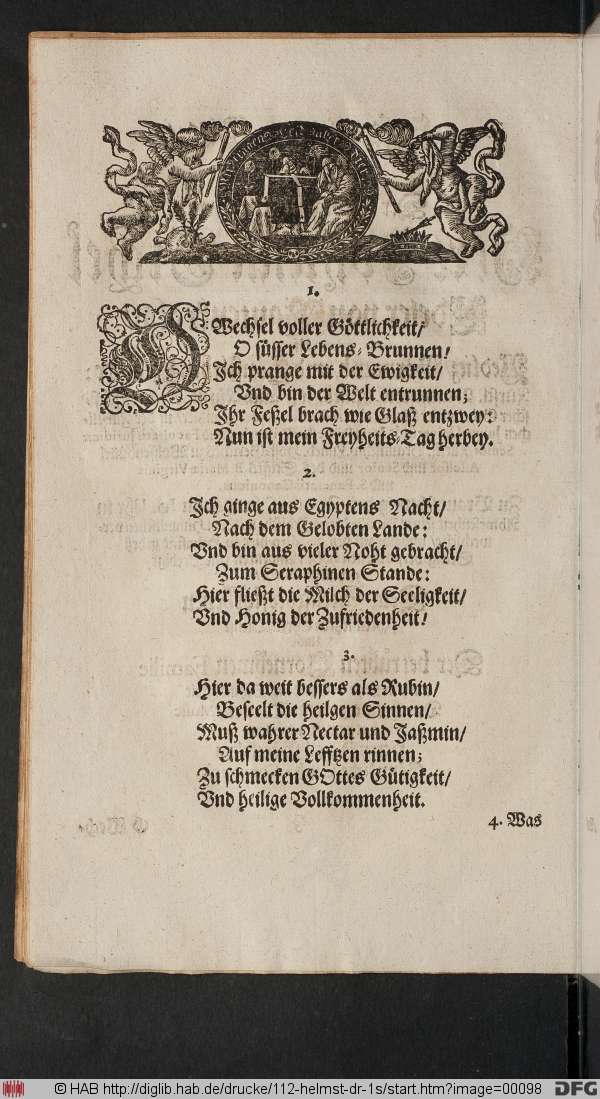 1.
O Wechsel voller Göttlichkeit/
O süsser Lebens-Brunnen!
Ich prange mit der Ewigkeit/
Vnd bin der Welt entrunnen;
Ihr Feßel brach wie Glaß entzwey:
Nun ist mein Freyheits-Tag herbey.
2.
Ich ginge aus Egyptens Nacht/
Nach dem Gelobten Lande:
Vnd bin aus vieler Noht gebracht/
Zum Seraphinen Stande:
Hier fließt die Milch der Seeligkeit/
Vnd Honig der Zufriedenheit!
3.
Hier da weit bessers als Rubin/
Beseelt die heilgen Sinnen/
Muß wahrer Nectar und Jaßmin/
Auf meine Lefftzen rinnen;
Zu schmecken GOttes Gütigkeit/
Vnd heilige Vollkommenheit.
4. Was
© HAB http://diglib.hab.de/drucke/112-helmst-dr-1s/start.htm?image=00098
DFG